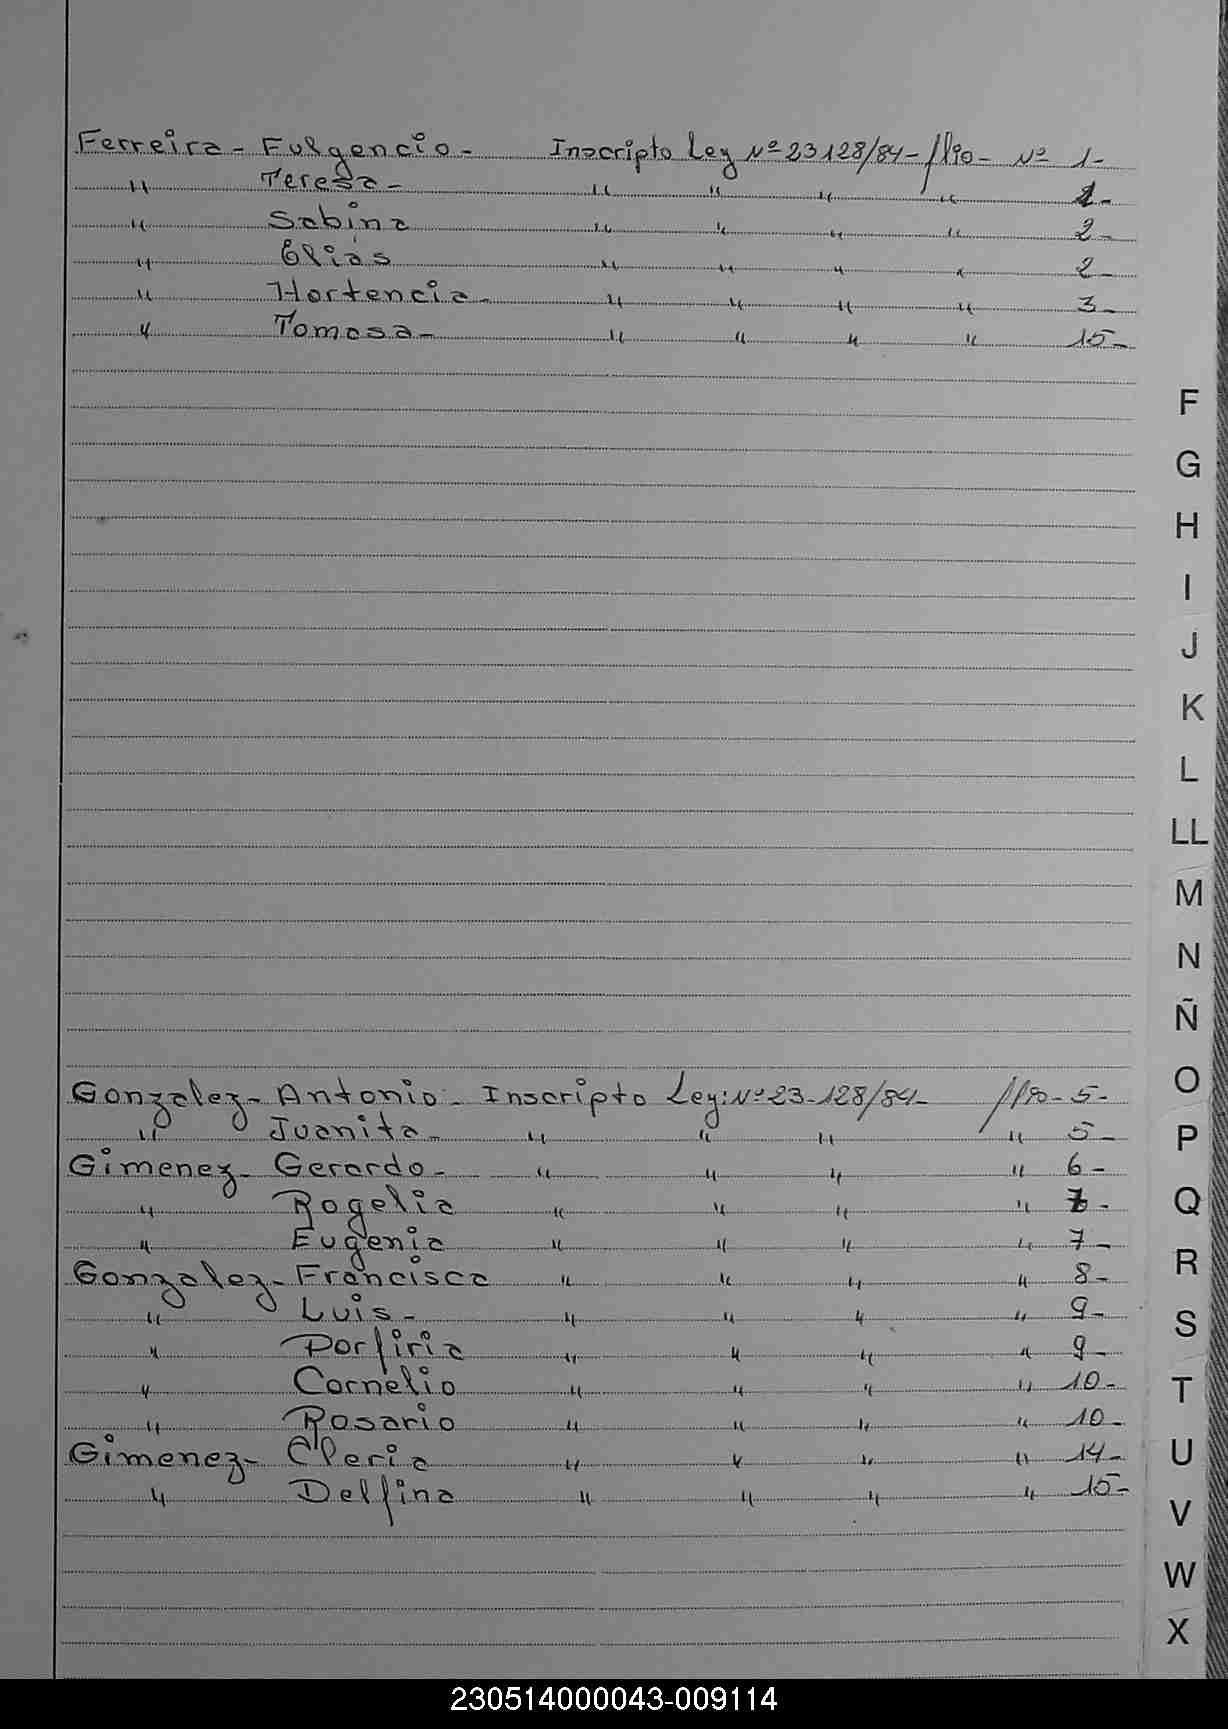 Ferreira - Fulgencio - Inscripto Ley Nº 23128/84 - flio - Nº 1 -
" Teresa - " " " " 1 -
" Sabina " " " " 2 -
" Eliás " " " " 2 -
" Hortencia - " " " " 3 -
" Tomasa - " " " " 15 -
F
G
H
I
J
K
L
LL
M
N
Ñ
O
P
Q
R
S
T
U
V
W
X
Gonzalez - Antonio - Inscripto Ley: Nº 23-128/84 - flio - 5 -
" Juanita - " " " " 5 -
Gimenez - Gerardo - " " " " 6 -
" Rogelia " " " " -
" Eugenia " " " " 7 -
Gonzalez - Francisca " " " " 8 -
" Luis - " " " " 9 -
" Porfiria " " " " 9 -
" Cornelio " " " " 10 -
" Rosario " " " " 10 -
Gimenez - " " " " 14 -
" Delfina " " " " 15 -
230514000043-009114